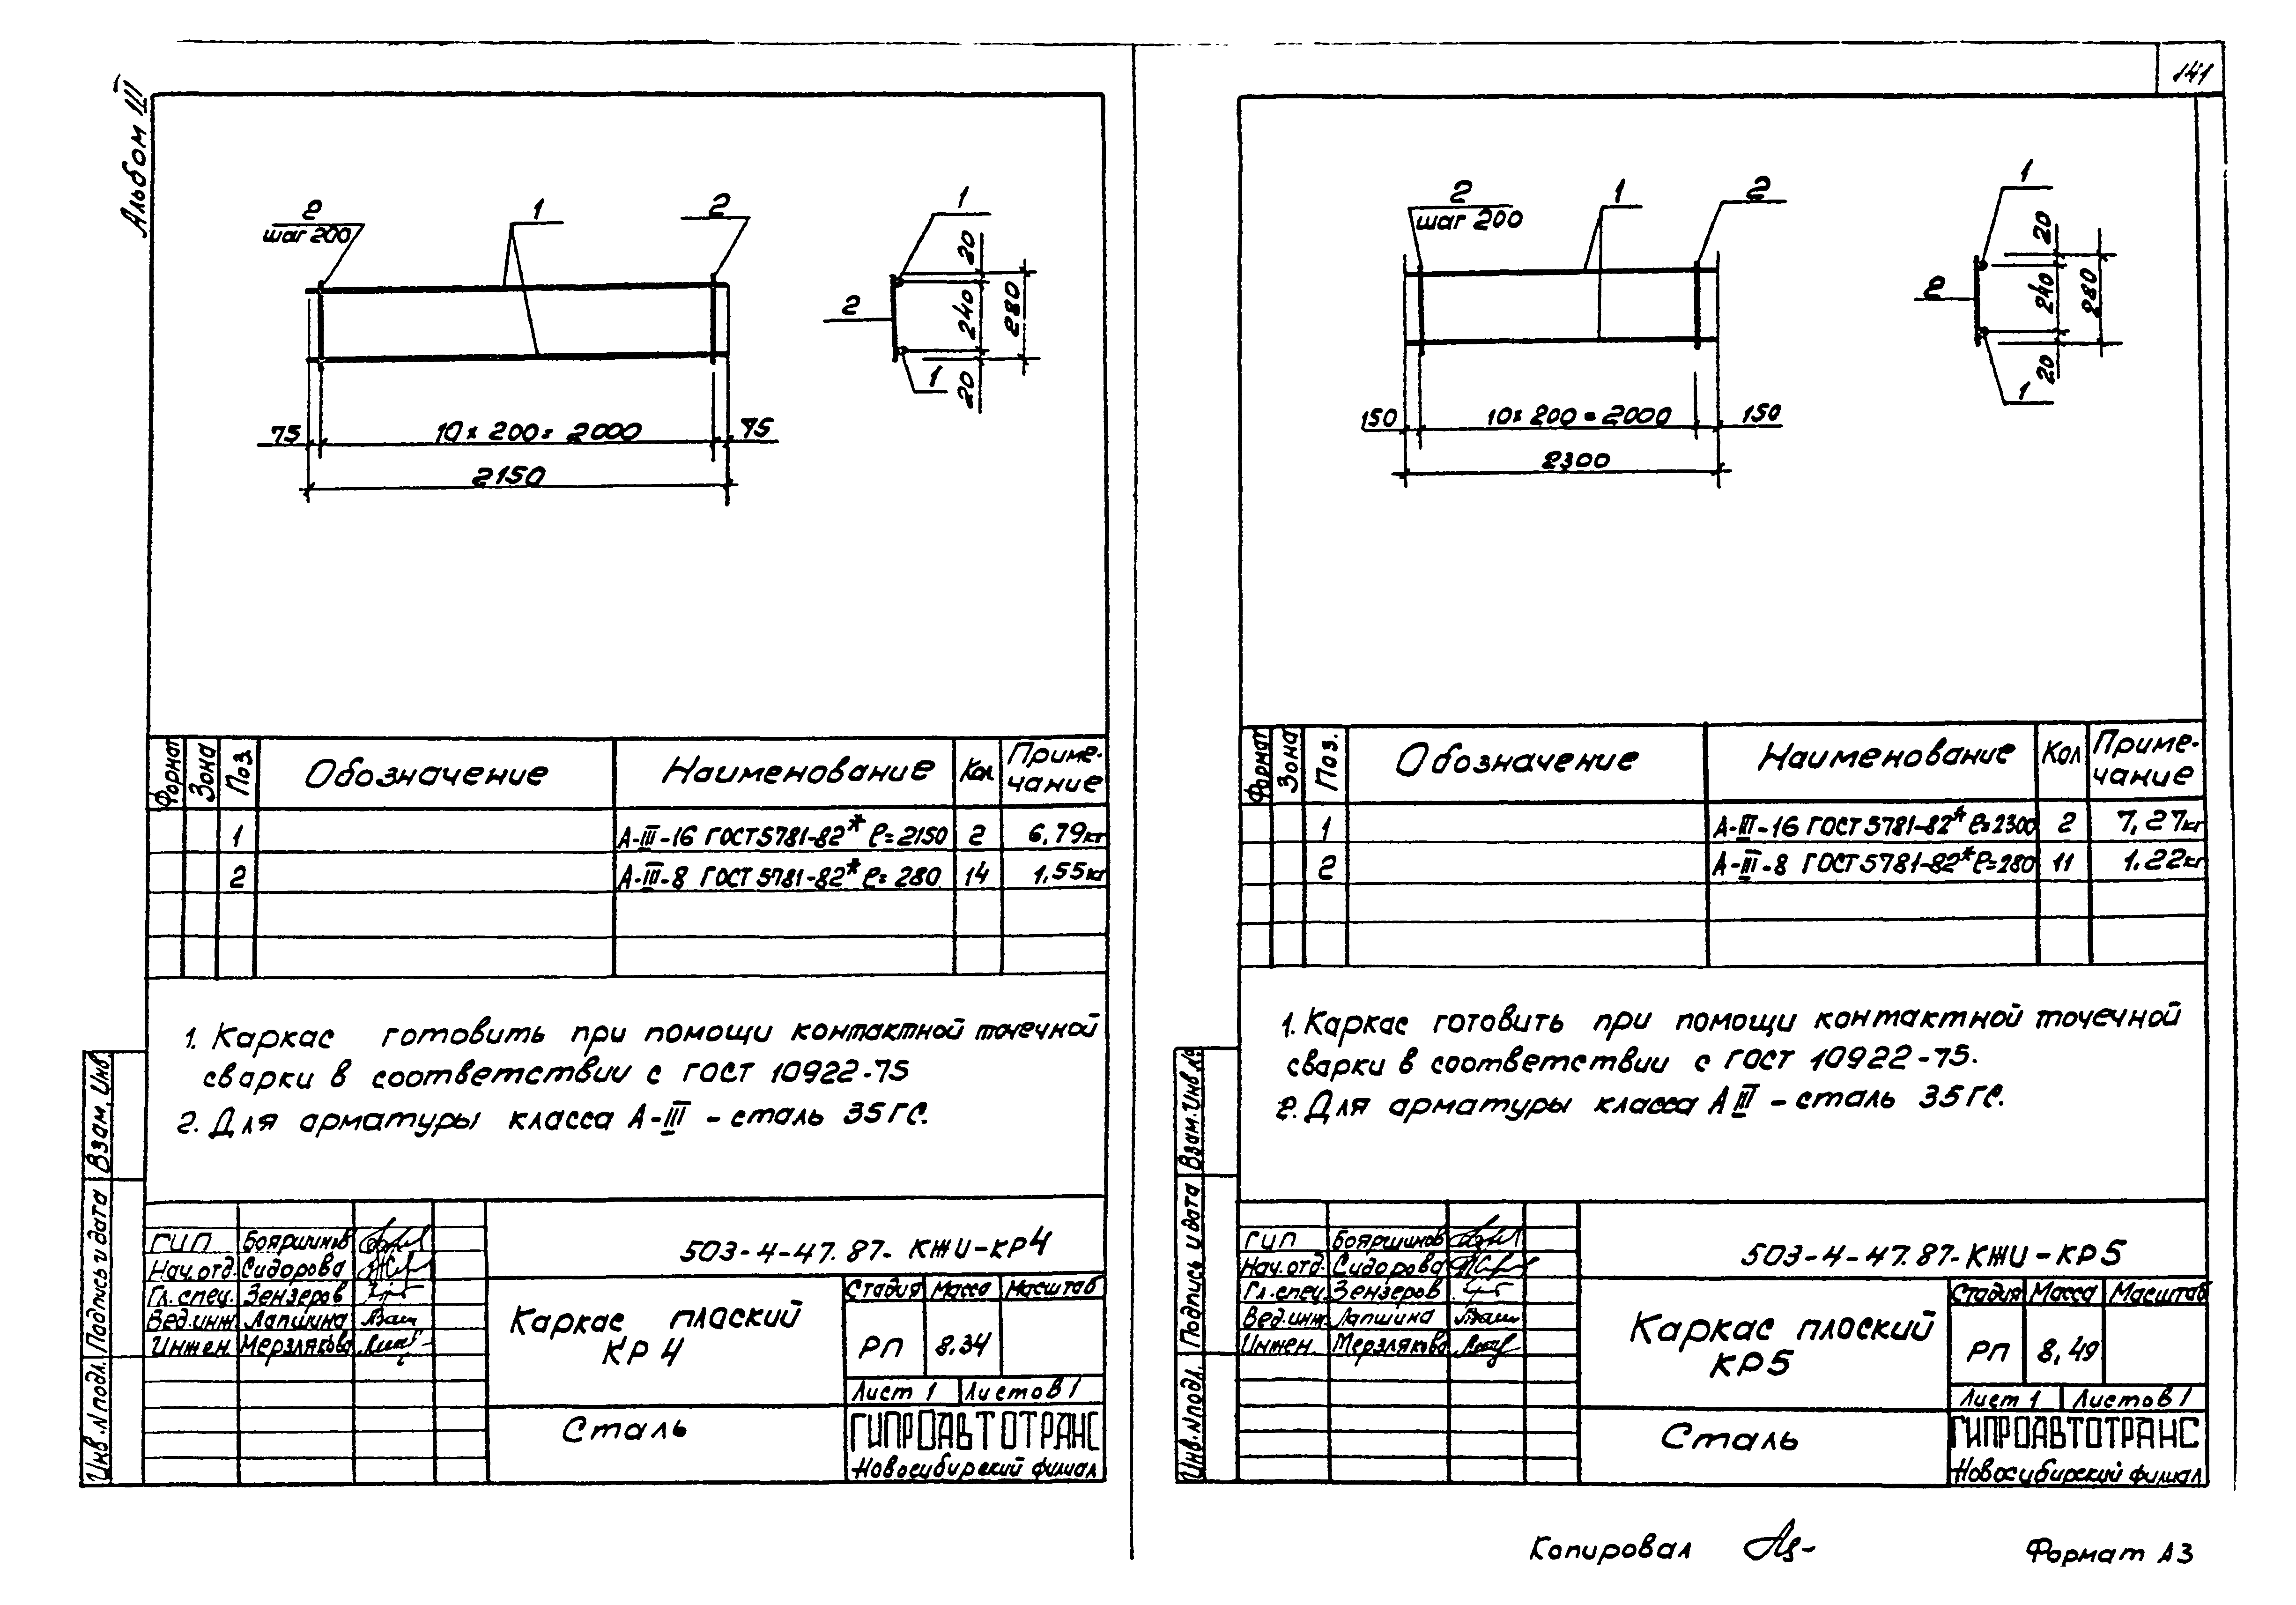 141
Альбом III
2
шаг 200
1
2
1
2
1
20
240
20
280
75
10 × 200 = 2000
75
2150
Формат Зона Поз. Обозначение Наименование Кол Приме-
чание
1 А-III-16 ГОСТ 5781-82* ℓ=2150 2 6,79кг
2 А-III-8 ГОСТ 5781-82* ℓ=280 14 1,55кг
1. Каркас готовить при помощи контактной точечной
сварки в соответствии с ГОСТ 10922-75
2. Для арматуры класса А-III - сталь 35ГС.
Инв. N подл. Подпись и дата Взам. Инв.
ГИП Бояршинов
Нач. отд. Сидорова
Гл. спец. Зензеров
Вед. инж. Лапшина
Инжен. Мерзлякова
503-4-47.87-КЖИ-КР4
Каркас плоский
КР4
Стадия Масса Масштаб
РП 8.34
Лист 1 Листов 1
Сталь
ГИПРОАВТОТРАНС
Новосибирский филиал
2
шаг 200
1
2
1
2
1
20
240
20
280
150
10 × 200 = 2000
150
2300
Формат Зона Поз. Обозначение Наименование Кол Приме-
чание
1 А-III-16 ГОСТ 5781-82* ℓ=2300 2 7,27кг
2 А-III-8 ГОСТ 5781-82* ℓ=280 11 1.22кг
1. Каркас готовить при помощи контактной точечной
сварки в соответствии с ГОСТ 10922-75.
2. Для арматуры класса А III - сталь 35ГС.
Инв. N подл. Подпись и дата Взам. Инв. N
ГИП Бояршинов
Нач. отд. Сидорова
Гл. спец. Зензеров
Вед. инж. Лапшина
Инжен. Мерзлякова
503-4-47.87-КЖИ-КР5
Каркас плоский
КР5
Стадия Масса Масштаб
РП 8,49
Лист 1 Листов 1
Сталь
ГИПРОАВТОТРАНС
Новосибирский филиал
Копировал
Формат А3